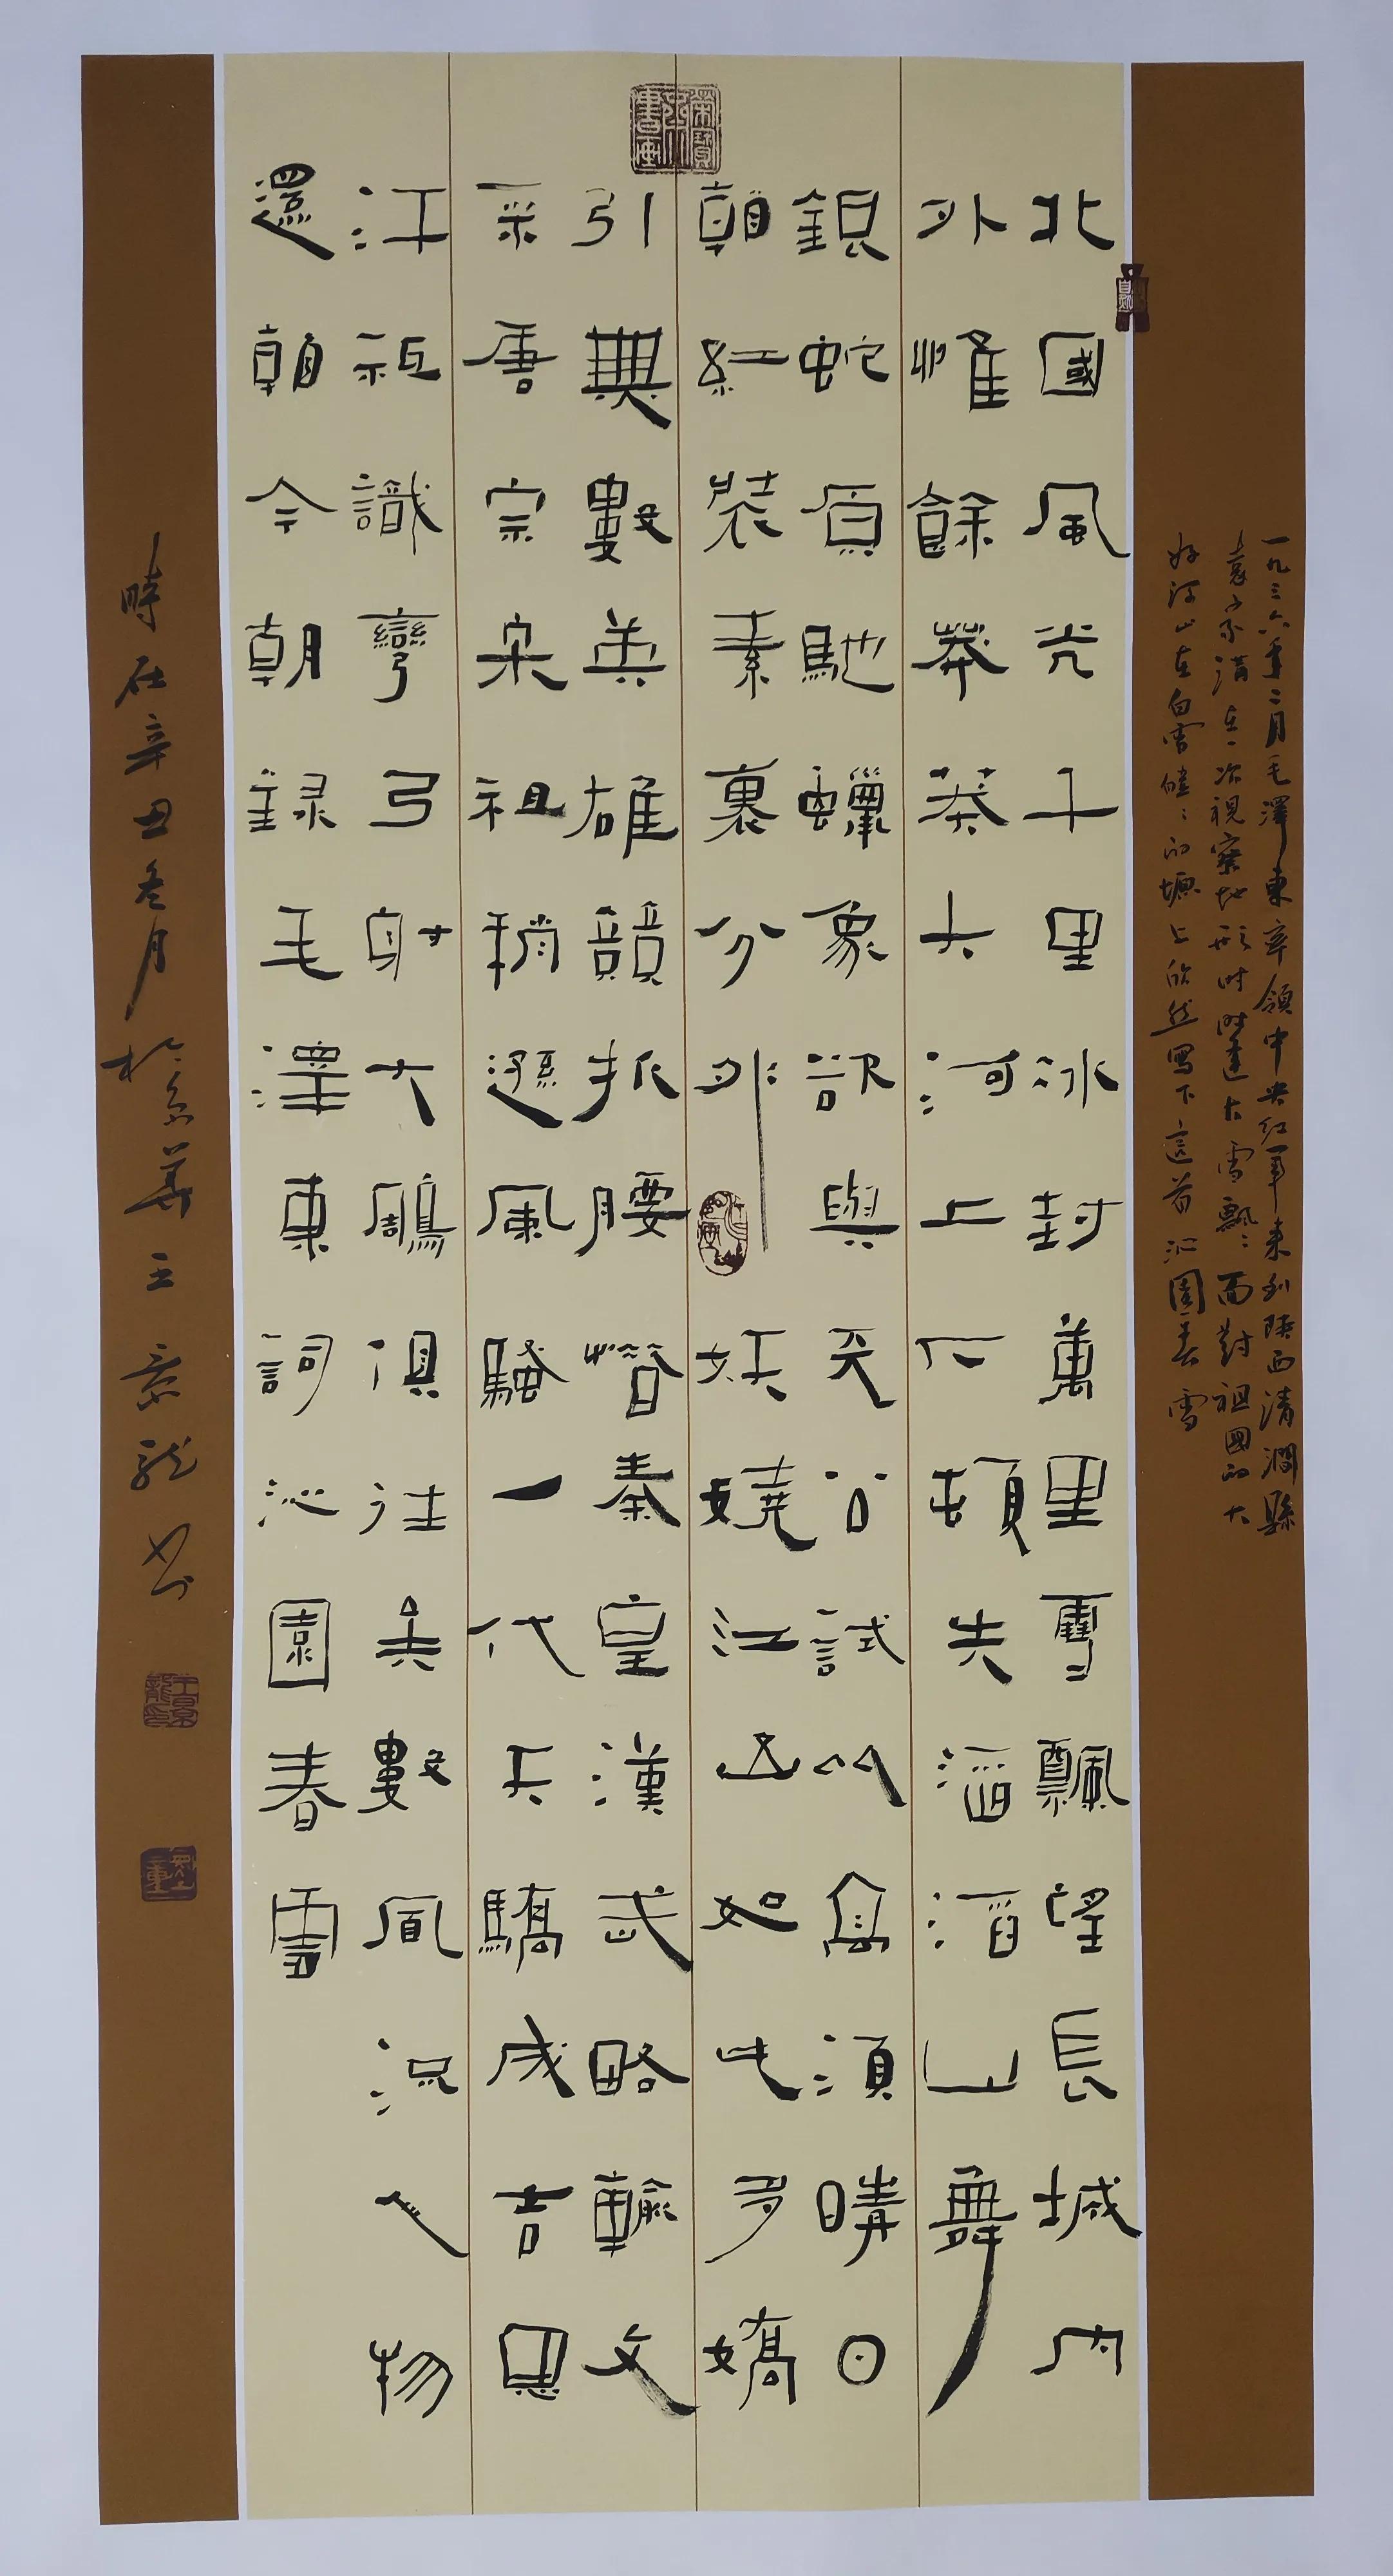 一九三六年二月毛澤東率領中央紅軍來到陝西清澗縣
袁家溝在一次視察地形时時逢大雪飄〻面對祖國的大
好河山在白雪皚〻的塬上欣然寫下這首沁園春雪
北國風光千里冰封萬里雪飄望長城内
外惟餘莽莽大河上下頓失滔滔山舞
銀蛇原馳蠟象欲與天公試比高須晴日
看紅裝素裹分外妖嬈江山如此多嬌
引無數英雄競折腰惜秦皇漢武略輸文
采唐宗宋祖稍遜風騷一代天驕成吉思
汗祗識彎弓射大鵰俱往矣數風流人物
還看今朝錄毛澤東詞沁園春雪
時在辛丑冬月於京華王景龍书